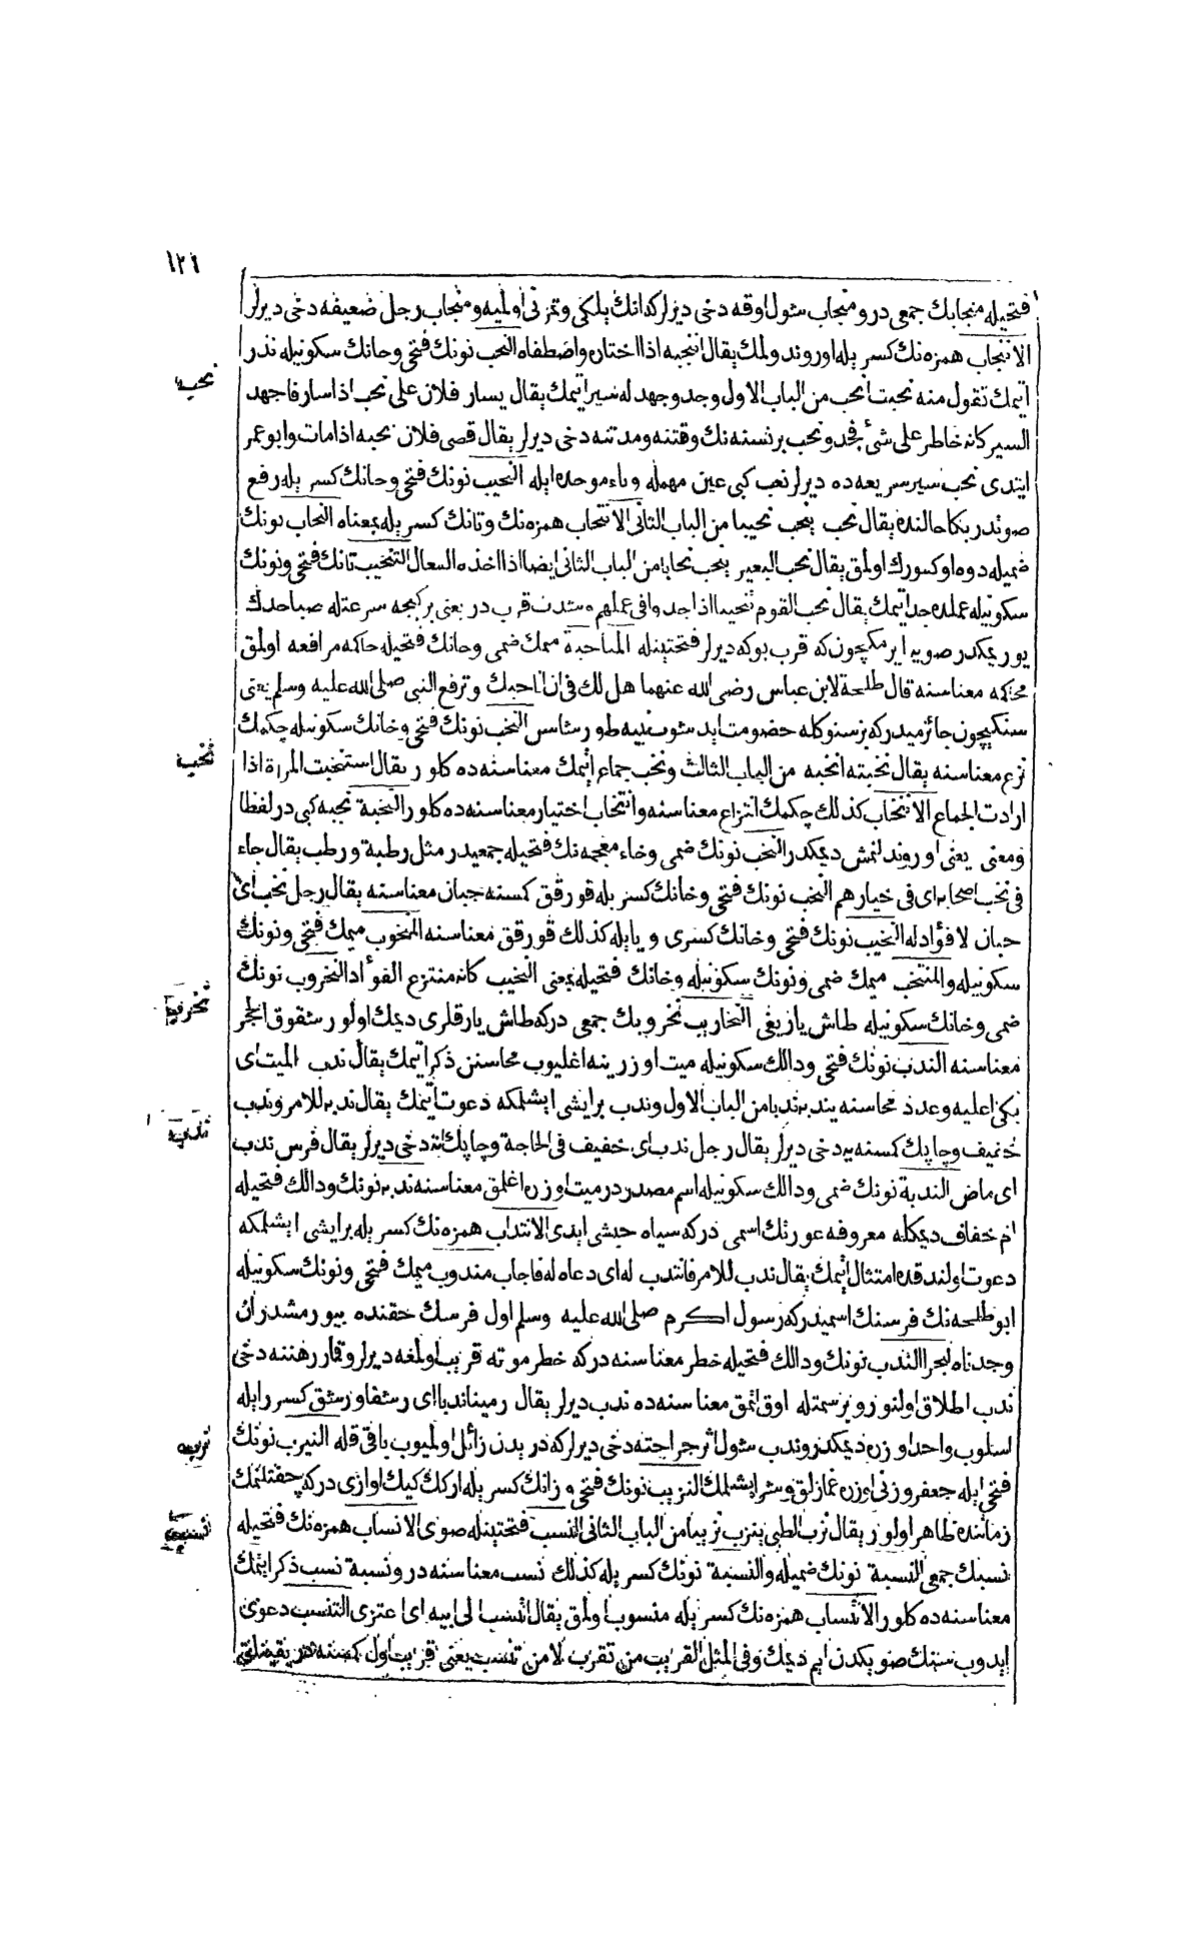 ١٢١
فتحيله منجابك جمعى در و منجاب شول اوقه دخى ديرلر كه انك يلكى و تمرنى اولميه و منجاب رجل ضعيفه دخى ديرلر
الانتجاب همزه نك كسر يله اوروندولمك يقال انتجبه اذا اختاره واصطفاه النحب نونك فتحى و حانك سكونيله نذر
نحب
اتمك تقول منه نحبت انحب من الباب الاول وجد وجهد له سير اتمك يقال يسار فلان على نحب اذا سار فاجهد
السير كانه خاطر على شئ فجد ونحب برنسنه نك وقتنه ومدتنه دخى ديرلر يقال قضى فلان نحبه اذا مات وابو عمر
ايتدى نحب سير سريعه ده ديرلر نعب كبى عين مهمله وباء موحده ايله النحيب نونك فتحى و حانك كسر يله رفع
صوتدر بكا حالنده يقال نحب ينحب نحيبا من الباب الثانى الانتحاب همزه نك و تانك كسر يله بمعناه النحاب نونك
ضميله دوه اوكسورك اولمق يقال نحب البعير ينحب نحابا من الباب الثانى ايضا اذا اخذه السعال التنحيب تانك فتحى و نونك
سكونيله عملده جد اتمك يقال نحب القوم تنحيبا اذا جدوا فى عملهم و شدت قرب در يعنى بر كيجه سرعتله صباحدك
يوريمكدر صويه ايرمكچون كه قرب بوكه ديرلر فتحتينله المناحبة ميمك ضمى و حانك فتحيله حاكمه مرافعه اولمق
محاكمه معناسنه قال طلحة لابن عباس رضى الله عنهما هل لك فى ان اناحبك وترفع النبى صلى الله عليه وسلم يعنى
سنكيچون جائز ميدر كه بز سنوكله خصومت ايدشوب نبيه طورشاسن النخب نونك فتحى و خانك سكونيله چكمك
نخب
نزع معناسنه يقال نخبته انخبه من الباب الثالث ونخب جماع اتمك معناسنه ده كلور يقال استنخبت المرأة اذا
ارادت الجماع الانتخاب كذلك چكمك انتزاع معناسنه وانتخاب اختيار معناسنه ده كلور النخبة نجبه كبى در لفظا
ومعنى يعنى اوروندلنمش ديمكدر النخب نونك ضمى و خاء معجمه نك فتحيله جمعيدر مثل رطبة ورطب يقال جاء
فى نخب اصحابه اى فى خيارهم النخب نونك فتحى و خانك كسر يله قورقق كسنه جبان معناسنه يقال رجل نخب اى
جبان لا فؤاد له النخيب نونك فتحى و خانك كسرى و يا يله كذلك قورقق معناسنه المنخوب ميمك فتحى و نونك
سكونيله والمنتخب ميمك ضمى و نونك سكونيله و خانك فتحيله بمعنى النخيب كانه منتزع الفؤاد النخروب نونك
نخرب
ضمى و خانك سكونيله طاش يازيغى النخاريب نخروبك جمعى در كه طاش يارقلرى ديمك اولور شقوق الحجر
معناسنه الندب نونك فتحى و دالك سكونيله ميت اوزرينه اغليوب محاسنن ذكر اتمك يقال ندب الميت اى
بكى عليه وعدد محاسنه يندبه ندبا من الباب الاول وندب بر ايشى ايشلمكه دعوت اتمك يقال ندبه للامر وندب
ندب
خفيف و چاپك كسنه يه دخى ديرلر يقال رجل ندب اى خفيف فى الحاجة و چاپك اته دخى ديرلر يقال فرس ندب
اى ماض الندبة نونك ضمى و دالك سكونيله اسم مصدر در ميت اوزره اغلمق معناسنه ندبه نونك و دالك فتحيله
ام خفاف ديمكله معروفه عورتك اسمى در كه سياه حبشى ايدى الانتداب همزه نك كسر يله بر ايشى ايشلمكه
دعوت اولندقده امتثال اتمك يقال ندب للامر فانتدب له اى دعاه له فاجاب مندوب ميمك فتحى و نونك سكونيله
ابو طلحه نك فرسنك اسميدر كه رسول اكرم صلى الله عليه وسلم اول فرسك حقنده بيورمشدر ان
وجدناه لبحرا الندب نونك و دالك فتحيله خطر معناسنه در كه خطر موته قريب اولمغه ديرلر و قمار رهننه دخى
ندب اطلاق اولنور و بر سمتله اوق اتمق معناسنه ده ندب ديرلر يقال رمينا ندبا اى رشقا و رشق كسر رايله
اسلوب واحد اوزره ديمكدر وندب شول اثر جراحته دخى ديرلر كه دريدن زائل اولميوب باقى قله النيرب نونك
نزب
فتحى ايله جعفر وزنى اوزره غمازلق و شر ايشلمك النزيب نونك فتحى و زانك كسر يله ارك كيك اوازى در كه چفتلنمك
زماننده ظاهر اولور يقال نزب الظبى ينزب نزيبا من الباب الثانى النسب فتحتينله صوى الانساب همزه نك فتحيله
نسب
نسبك جمعى النسبة نونك ضميله والنسبة نونك كسر يله كذلك نسب معناسنه در و نسبة نسب ذكر ايتمك
معناسنه ده كلور الانتساب همزه نك كسر يله منسوب اولمق يقال انتسب الى ابيه اى اعتزى التنسب دعوى
ايدوب سنك صويكدن ايم ديمك وفى المثل القريب من تقرب لا من تنسب يعنى قريب اول كسنه در